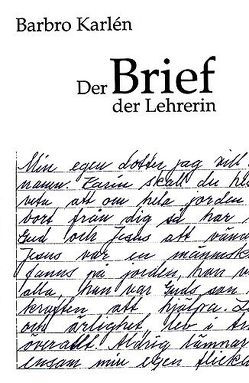 Barbro Karlén
Der Brief
der Lehrerin
Min egen dotter jag vill
namn. Karin skall du he
veta att om hela jorden
bort från dig så har
Gud och Jesus att vänd
Jesus var en människa
fanns på jorden, han v
alla, han var Guds son
kraften att hjälpa. L
och ärlighet lev s
överallt. Aldrig lämnas
ensam min egen flicka